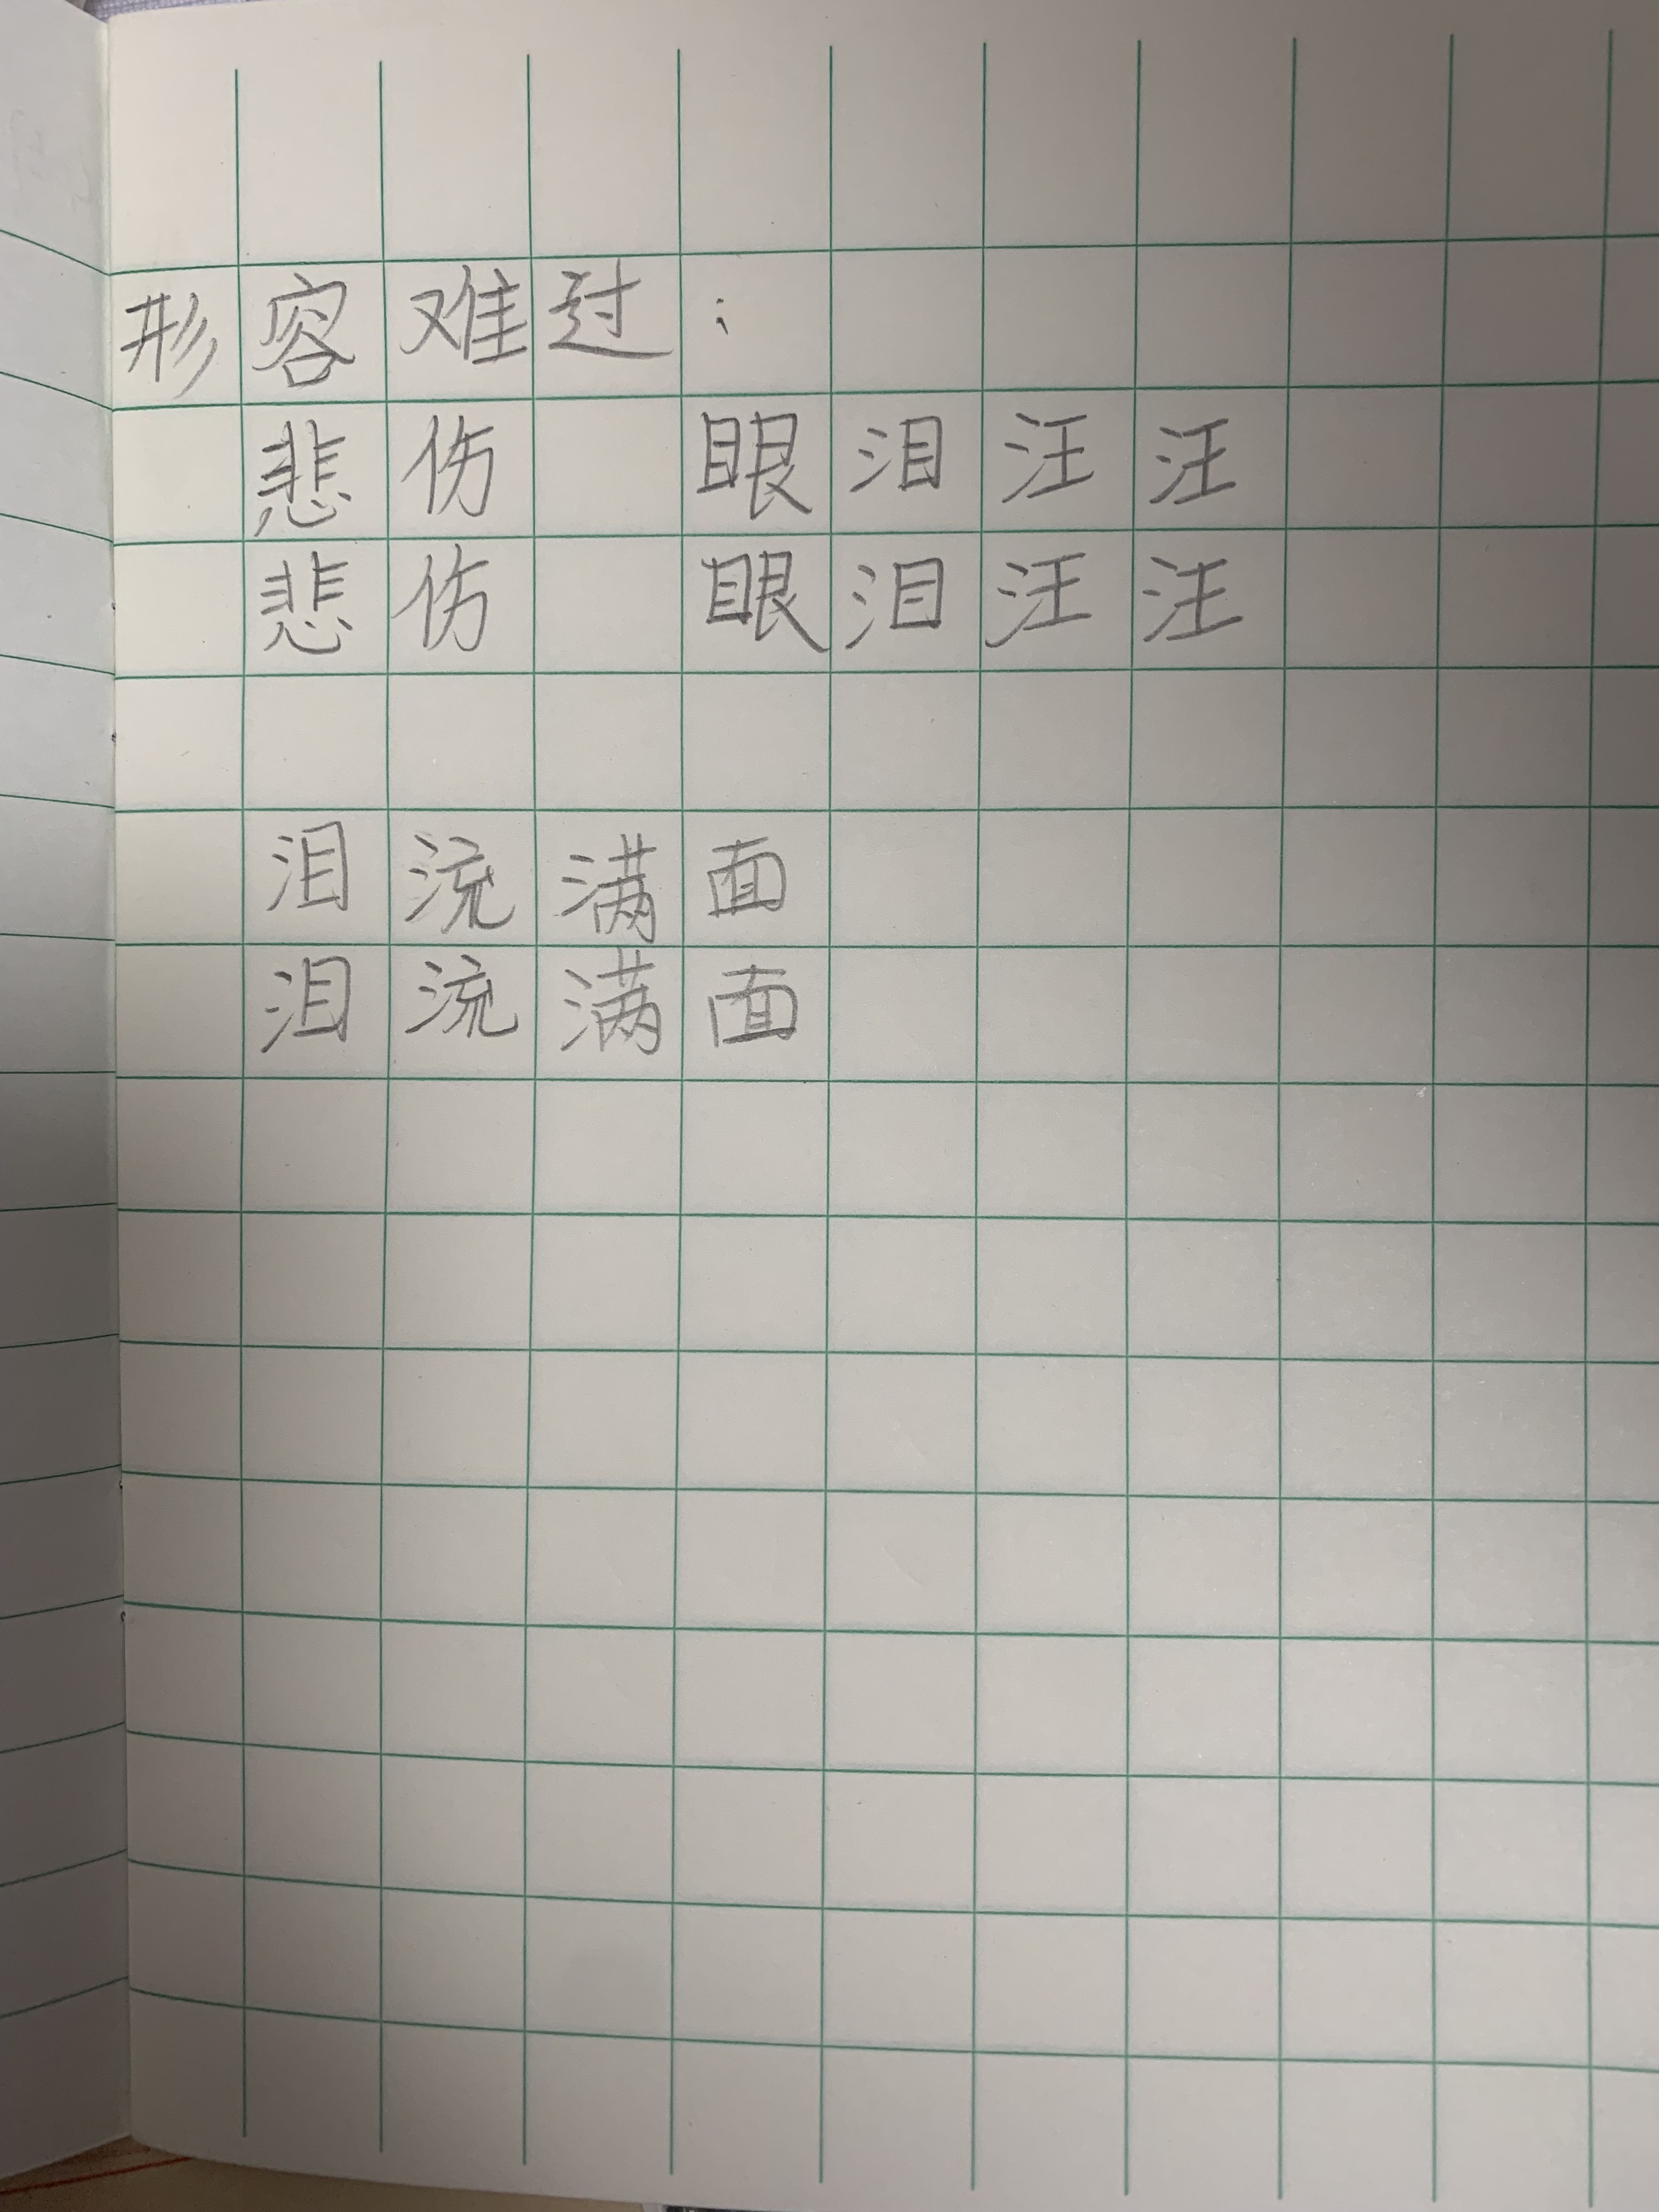 形容难过：
悲伤 眼泪汪汪
悲伤 眼泪汪汪
泪流满面
泪流满面